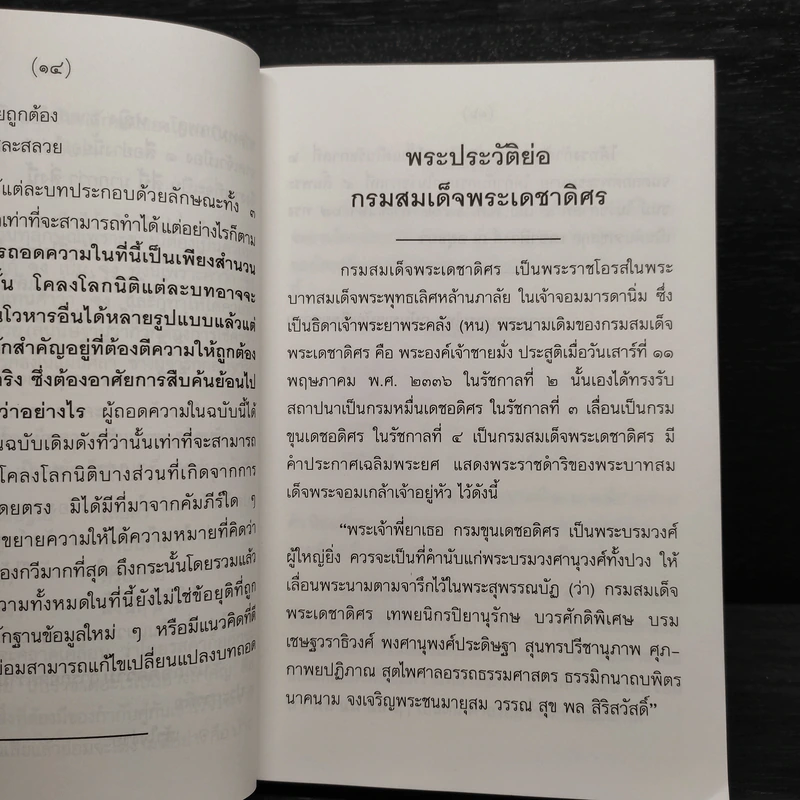 (๑๔)
ยถูกต้อง
สละสลวย
แต่ละบทประกอบด้วยลักษณะทั้ง ๓
เท่าที่จะสามารถทำได้ แต่อย่างไรก็ตาม
รถอดความในที่นี้เป็นเพียงสำนวน
ั้น โคลงโลกนิติแต่ละบทอาจจะ
นโวหารอื่นได้หลายรูปแบบแล้วแต่
ักสำคัญอยู่ที่ต้องตีความให้ถูกต้อง
ริง ซึ่งต้องอาศัยการสืบค้นย้อนไป
ว่าอย่างไร ผู้ถอดความในฉบับนี้ได้
นฉบับเดิมดังที่ว่านั้นเท่าที่จะสามารถ
โคลงโลกนิติบางส่วนที่เกิดจากการ
ดยตรง มิได้มีที่มาจากคัมภีร์ใด ๆ
ขยายความให้ได้ความหมายที่คิดว่า
องกวีมากที่สุด ถึงกระนั้นโดยรวมแล้ว
วามทั้งหมดในที่นี้ยังไม่ใช่ข้อยุติที่ถูก
ักฐานข้อมูลใหม่ ๆ หรือมีแนวคิดที่ดี
ย่อมสามารถแก้ไขเปลี่ยนแปลงบทถอด
พระประวัติย่อ
กรมสมเด็จพระเดชาดิศร
กรมสมเด็จพระเดชาดิศร เป็นพระราชโอรสในพระ
บาทสมเด็จพระพุทธเลิศหล้านภาลัย ในเจ้าจอมมารดานิ่ม ซึ่ง
เป็นธิดาเจ้าพระยาพระคลัง (หน) พระนามเดิมของกรมสมเด็จ
พระเดชาดิศร คือ พระองค์เจ้าชายมั่ง ประสูติเมื่อวันเสาร์ที่ ๑๑
พฤษภาคม พ.ศ. ๒๓๓๖ ในรัชกาลที่ ๒ นั้นเองได้ทรงรับ
สถาปนาเป็นกรมหมื่นเดชอดิศร ในรัชกาลที่ ๓ เลื่อนเป็นกรม
ขุนเดชอดิศร ในรัชกาลที่ ๔ เป็นกรมสมเด็จพระเดชาดิศร มี
คำประกาศเฉลิมพระยศ แสดงพระราชดำริของพระบาทสม
เด็จพระจอมเกล้าเจ้าอยู่หัว ไว้ดังนี้
“พระเจ้าพี่ยาเธอ กรมขุนเดชอดิศร เป็นพระบรมวงศ์
ผู้ใหญ่ยิ่ง ควรจะเป็นที่คำนับแก่พระบรมวงศานุวงศ์ทั้งปวง ให้
เลื่อนพระนามตามจารึกไว้ในพระสุพรรณบัฏ (ว่า) กรมสมเด็จ
พระเดชาดิศร เทพยนิกรปิยานุรักษ บวรศักดิพิเศษ บรม
เชษฐวราธิวงศ์ พงศานุพงศ์ประดิษฐา สุนทรปรีชานุภาพ ศุภ-
กาพยปฏิภาณ สุตไพศาลอรรถธรรมศาสตร ธรรมิกนาถบพิตร
นาคนาม จงเจริญพระชนมายุสม วรรณ สุข พล สิริสวัสดิ์”